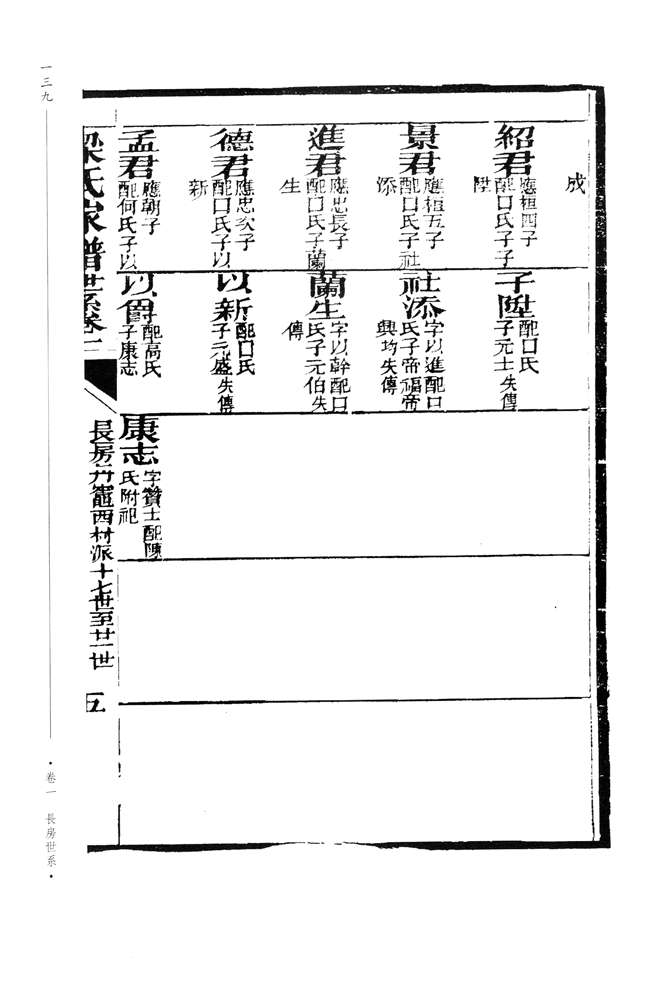 成
紹君
應桓四子
配口氏子子
陞
景君
應桓五子
配口氏子社
添
進君
應忠長子
配口氏子蘭
生
德君
應忠次子
配口氏子以
新
孟君
應朝子
配何氏子以
子陞
配口氏
子元士失傳
社添
字以進配口
氏子帝福帝
興均失傳
蘭生
字以幹配口
氏子元伯失
傳
以新
配口氏
子元盛失傳
以爵
配高氏
子康志
康志
字贊士配陳
氏附祀
梁氏家譜世系卷一
長房丹竈西村派十七世至廿一世
五
一三九
·卷一 長房世系·